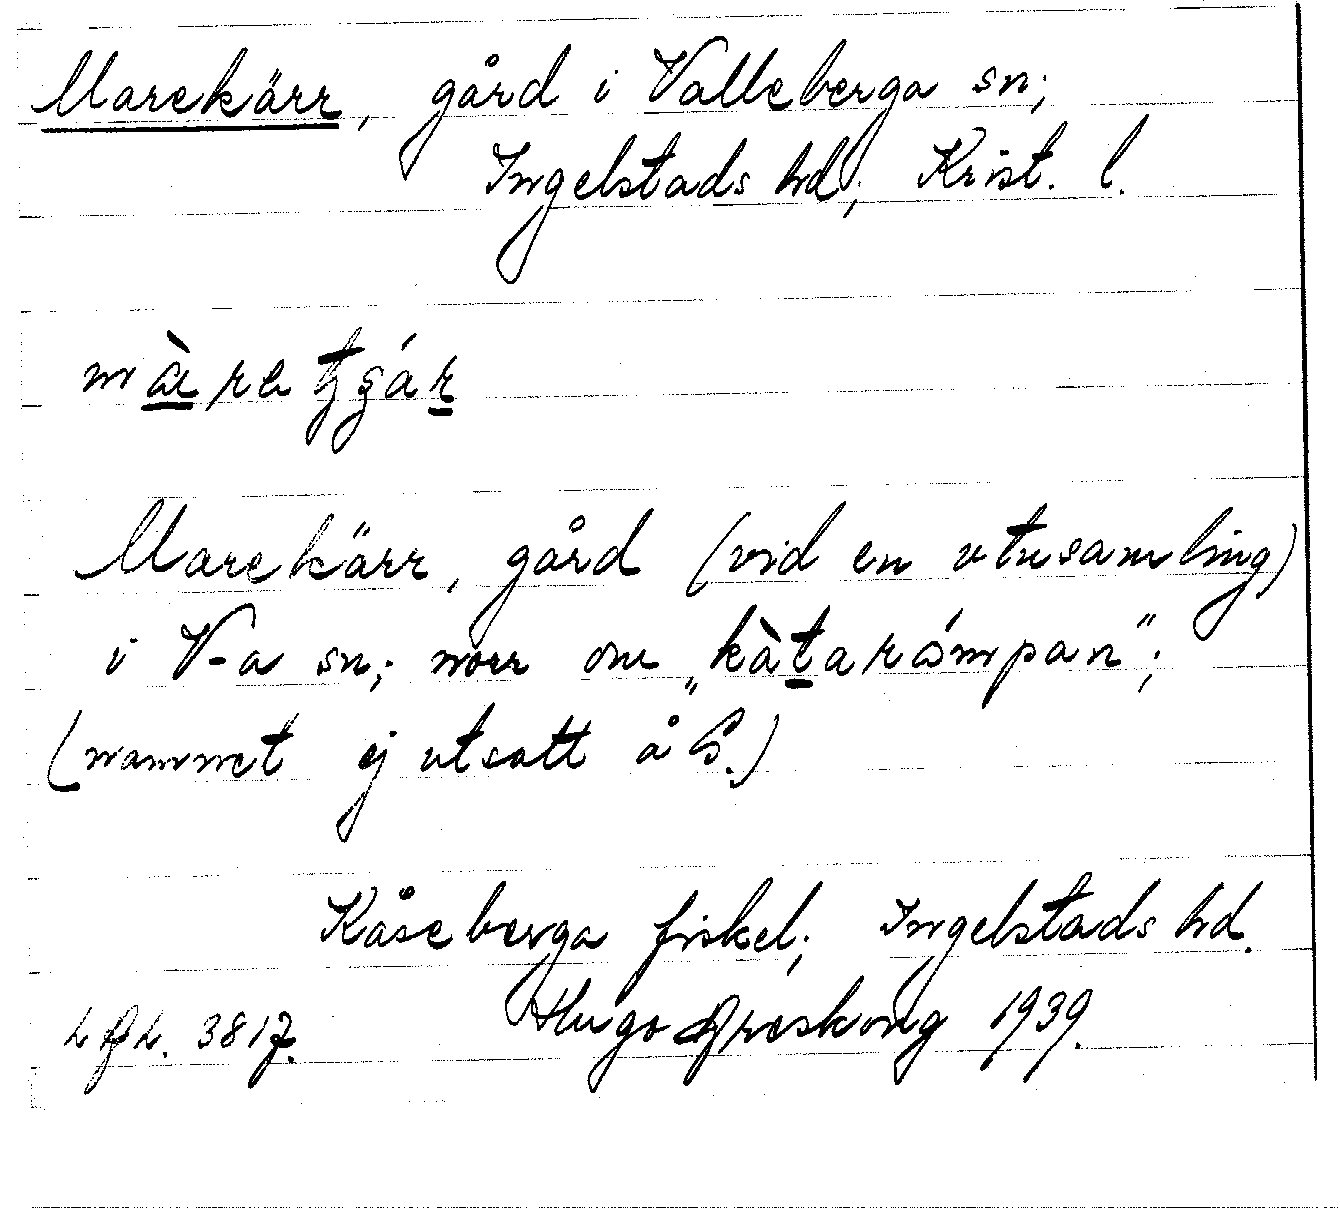 Marekärr, gård i Valleberga sn;
Ingelstads hd; Krist. l.
Marekärr, gård (vid en utnsamling)
i V-a sn; norr om „kàtarómpan";
(namnet ej utsatt å G.)
Kåseberga fiskel; Ingelstads hd.
3817. Hugo Areskoug 1939.